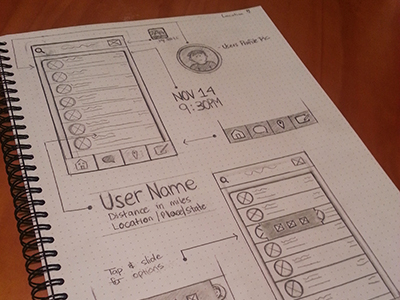 Location
User Profile Pic.
NOV 14
9:30PM
User Name
Distance in miles
Location/Place/State
Tap & slide
for options